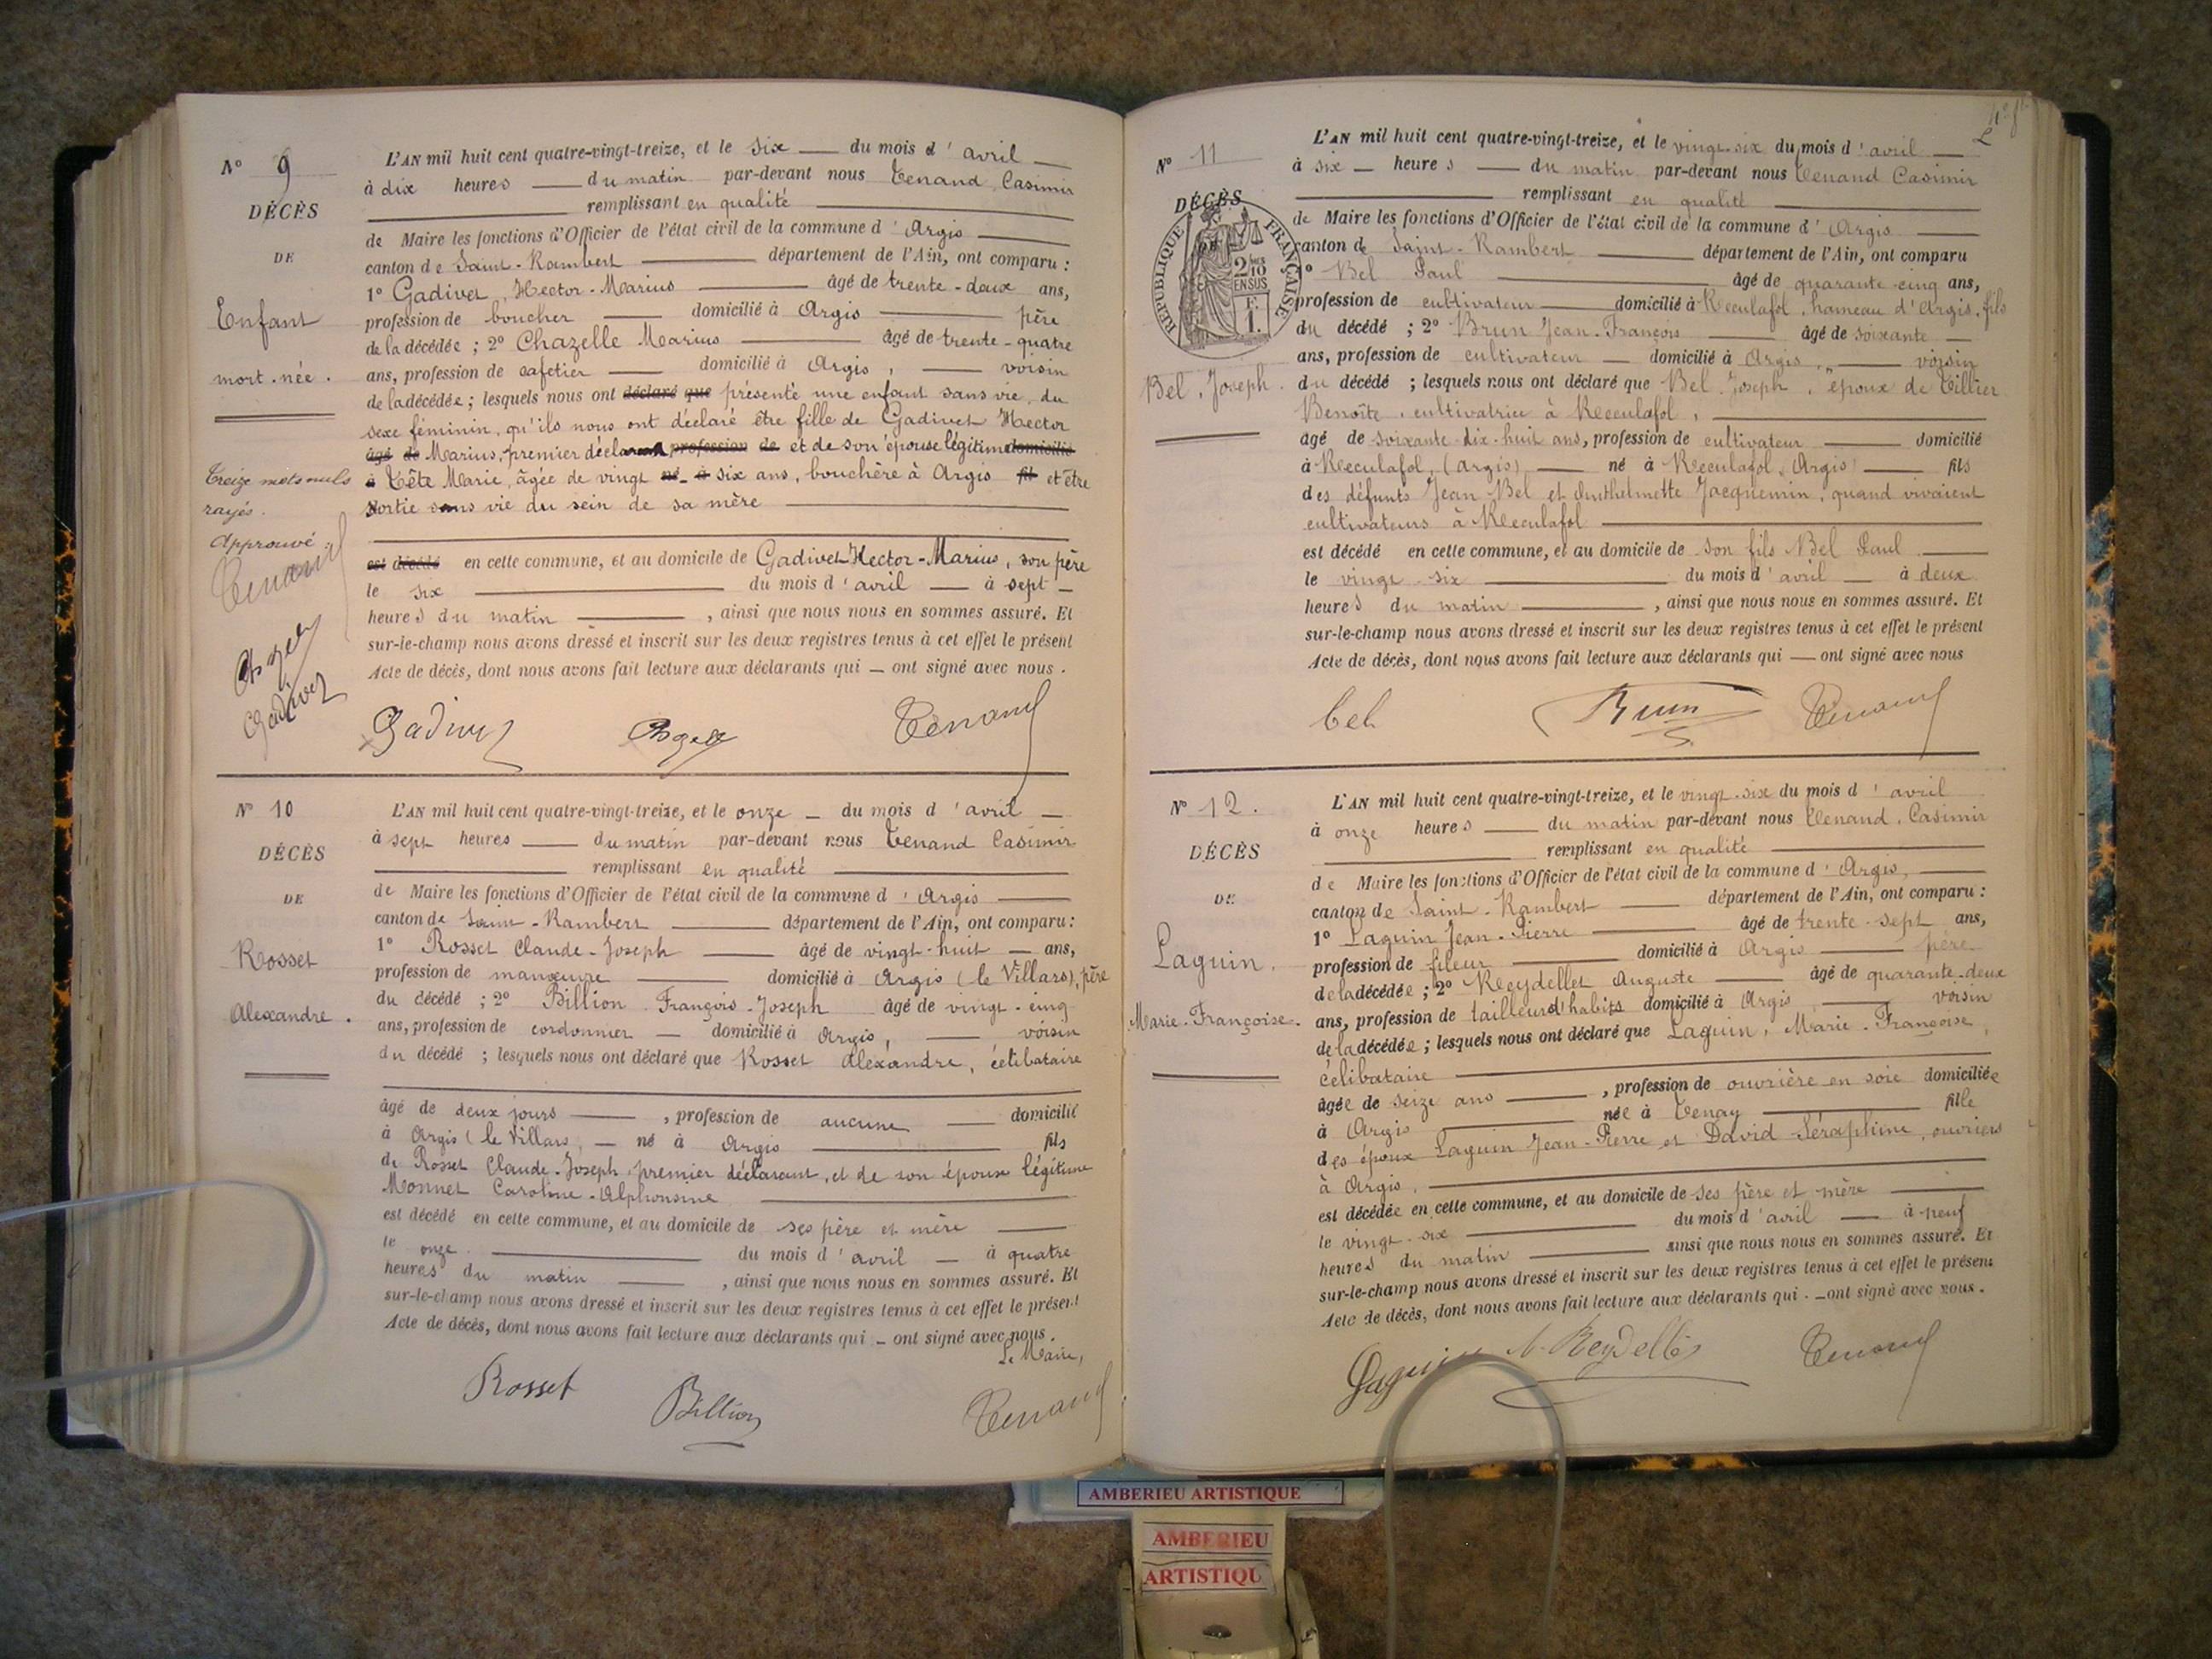 N° 9
DÉCÈS
DE
Enfant
mort-née.
Treize mots nuls
rayés.
Approuvé :
Tenand
Chazelle
Gadivet
L'AN mil huit cent quatre-vingt-treize, et le six du mois d'avril
à dix heures du matin par-devant nous Tenand, Casimir
remplissant en qualité
de Maire les fonctions d'Officier de l'état civil de la commune d'Argis
canton de Saint-Rambert département de l'Ain, ont comparu :
1° Gadivet, Hector-Marius âgé de trente-deux ans,
profession de boucher domicilié à Argis père
de la décédée ; 2° Chazelle Marius âgé de trente-quatre
ans, profession de cafetier domicilié à Argis, voisin
de la décédée ; lesquels nous ont déclaré que présenté une enfant sans vie, du
sexe féminin, qu'ils nous ont déclaré être fille de Gadivet Hector
âgé de Marius, premier déclarant profession de et de son épouse légitime domicilié
à Tête Marie, âgée de vingt né à six ans, bouchère à Argis fil et être
sortie sans vie du sein de sa mère
est décédé en cette commune, et au domicile de Gadivet Hector-Marius, son père
le six du mois d'avril à sept
heures du matin, ainsi que nous nous en sommes assuré. Et
sur-le-champ nous avons dressé et inscrit sur les deux registres tenus à cet effet le présent
Acte de décès, dont nous avons fait lecture aux déclarants qui ont signé avec nous.
Gadivet Tenand
N° 10
DÉCÈS
DE
Rosset
Alexandre.
L'AN mil huit cent quatre-vingt-treize, et le onze du mois d'avril
à sept heures du matin par-devant nous Tenand Casimir
remplissant en qualité
de Maire les fonctions d'Officier de l'état civil de la commune d'Argis
canton de Saint-Rambert département de l'Ain, ont comparu :
1° Rosset Claude-Joseph âgé de vingt-huit ans,
profession de manœuvre domicilié à Argis (le Villars), père
du décédé ; 2° Billion François-Joseph âgé de vingt-cinq
ans, profession de cordonnier domicilié à Argis, voisin
du décédé ; lesquels nous ont déclaré que Rosset Alexandre, célibataire
âgé de deux jours, profession de aucune domicilié
à Argis (le Villars, né à Argis fils
de Rosset Claude-Joseph, premier déclarant, et de son épouse légitime
Monnet Caroline-Alphonsine
est décédé en cette commune, et au domicile de ses père et mère
le onze du mois d'avril à quatre
heures du matin, ainsi que nous nous en sommes assuré. Et
sur-le-champ nous avons dressé et inscrit sur les deux registres tenus à cet effet le présent
Acte de décès, dont nous avons fait lecture aux déclarants qui ont signé avec nous.
Le Maire,
Rosset Billion Tenand
N° 11
DÉCÈS
RÉPUBLIQUE FRANÇAISE
2/10
EN SUS
F.
1.
Bel, Joseph.
L'AN mil huit cent quatre-vingt-treize, et le vingt-six du mois d'avril
à six heures du matin par-devant nous Tenand Casimir
remplissant en qualité
de Maire les fonctions d'Officier de l'état civil de la commune d'Argis
canton de Saint-Rambert département de l'Ain, ont comparu
1° Bel Paul âgé de quarante-cinq ans,
profession de cultivateur domicilié à Reculafol, hameau d'Argis, fils
du décédé ; 2° Brun Jean-François âgé de soixante
ans, profession de cultivateur domicilié à Argis, voisin
du décédé ; lesquels nous ont déclaré que Bel, Joseph, époux de Tillier
Benoîte, cultivatrice à Reculafol,
âgé de soixante-dix-huit ans, profession de cultivateur domicilié
à Reculafol, (Argis) né à Reculafol (Argis) fils
des défunts Jean Bel et Anthelmette Jacquemin, quand vivaient
cultivateurs à Reculafol
est décédé en cette commune, et au domicile de son fils Bel Paul
le vingt-six du mois d'avril à deux
heures du matin, ainsi que nous nous en sommes assuré. Et
sur-le-champ nous avons dressé et inscrit sur les deux registres tenus à cet effet le présent
Acte de décès, dont nous avons fait lecture aux déclarants qui ont signé avec nous
bel Brun Tenand
N° 12.
DÉCÈS
DE
Laguin.
Marie-Françoise.
L'AN mil huit cent quatre-vingt-treize, et le vingt-six du mois d'avril
à onze heures du matin par-devant nous Tenand, Casimir
remplissant en qualité
de Maire les fonctions d'Officier de l'état civil de la commune d'Argis,
canton de Saint-Rambert département de l'Ain, ont comparu :
1° Laguin Jean-Pierre âgé de trente-sept ans,
profession de fileur domicilié à Argis père
de la décédée ; 2° Reydellet Auguste âgé de quarante-deux
ans, profession de tailleur d'habits domicilié à Argis, voisin
de la décédée ; lesquels nous ont déclaré que Laguin, Marie-Françoise,
célibataire
âgée de seize ans, profession de ouvrière en soie domiciliée
à Argis née à Tenay fille
des époux Laguin Jean-Pierre et David Séraphine, ouvriers
à Argis,
est décédée en cette commune, et au domicile de ses père et mère
le vingt-six du mois d'avril à neuf
heures du matin ainsi que nous nous en sommes assuré. Et
sur-le-champ nous avons dressé et inscrit sur les deux registres tenus à cet effet le présent
Acte de décès, dont nous avons fait lecture aux déclarants qui ont signé avec nous.
Laguin A. Reydellet Tenand
AMBERIEU ARTISTIQUE
AMBERIEU
ARTISTIQU